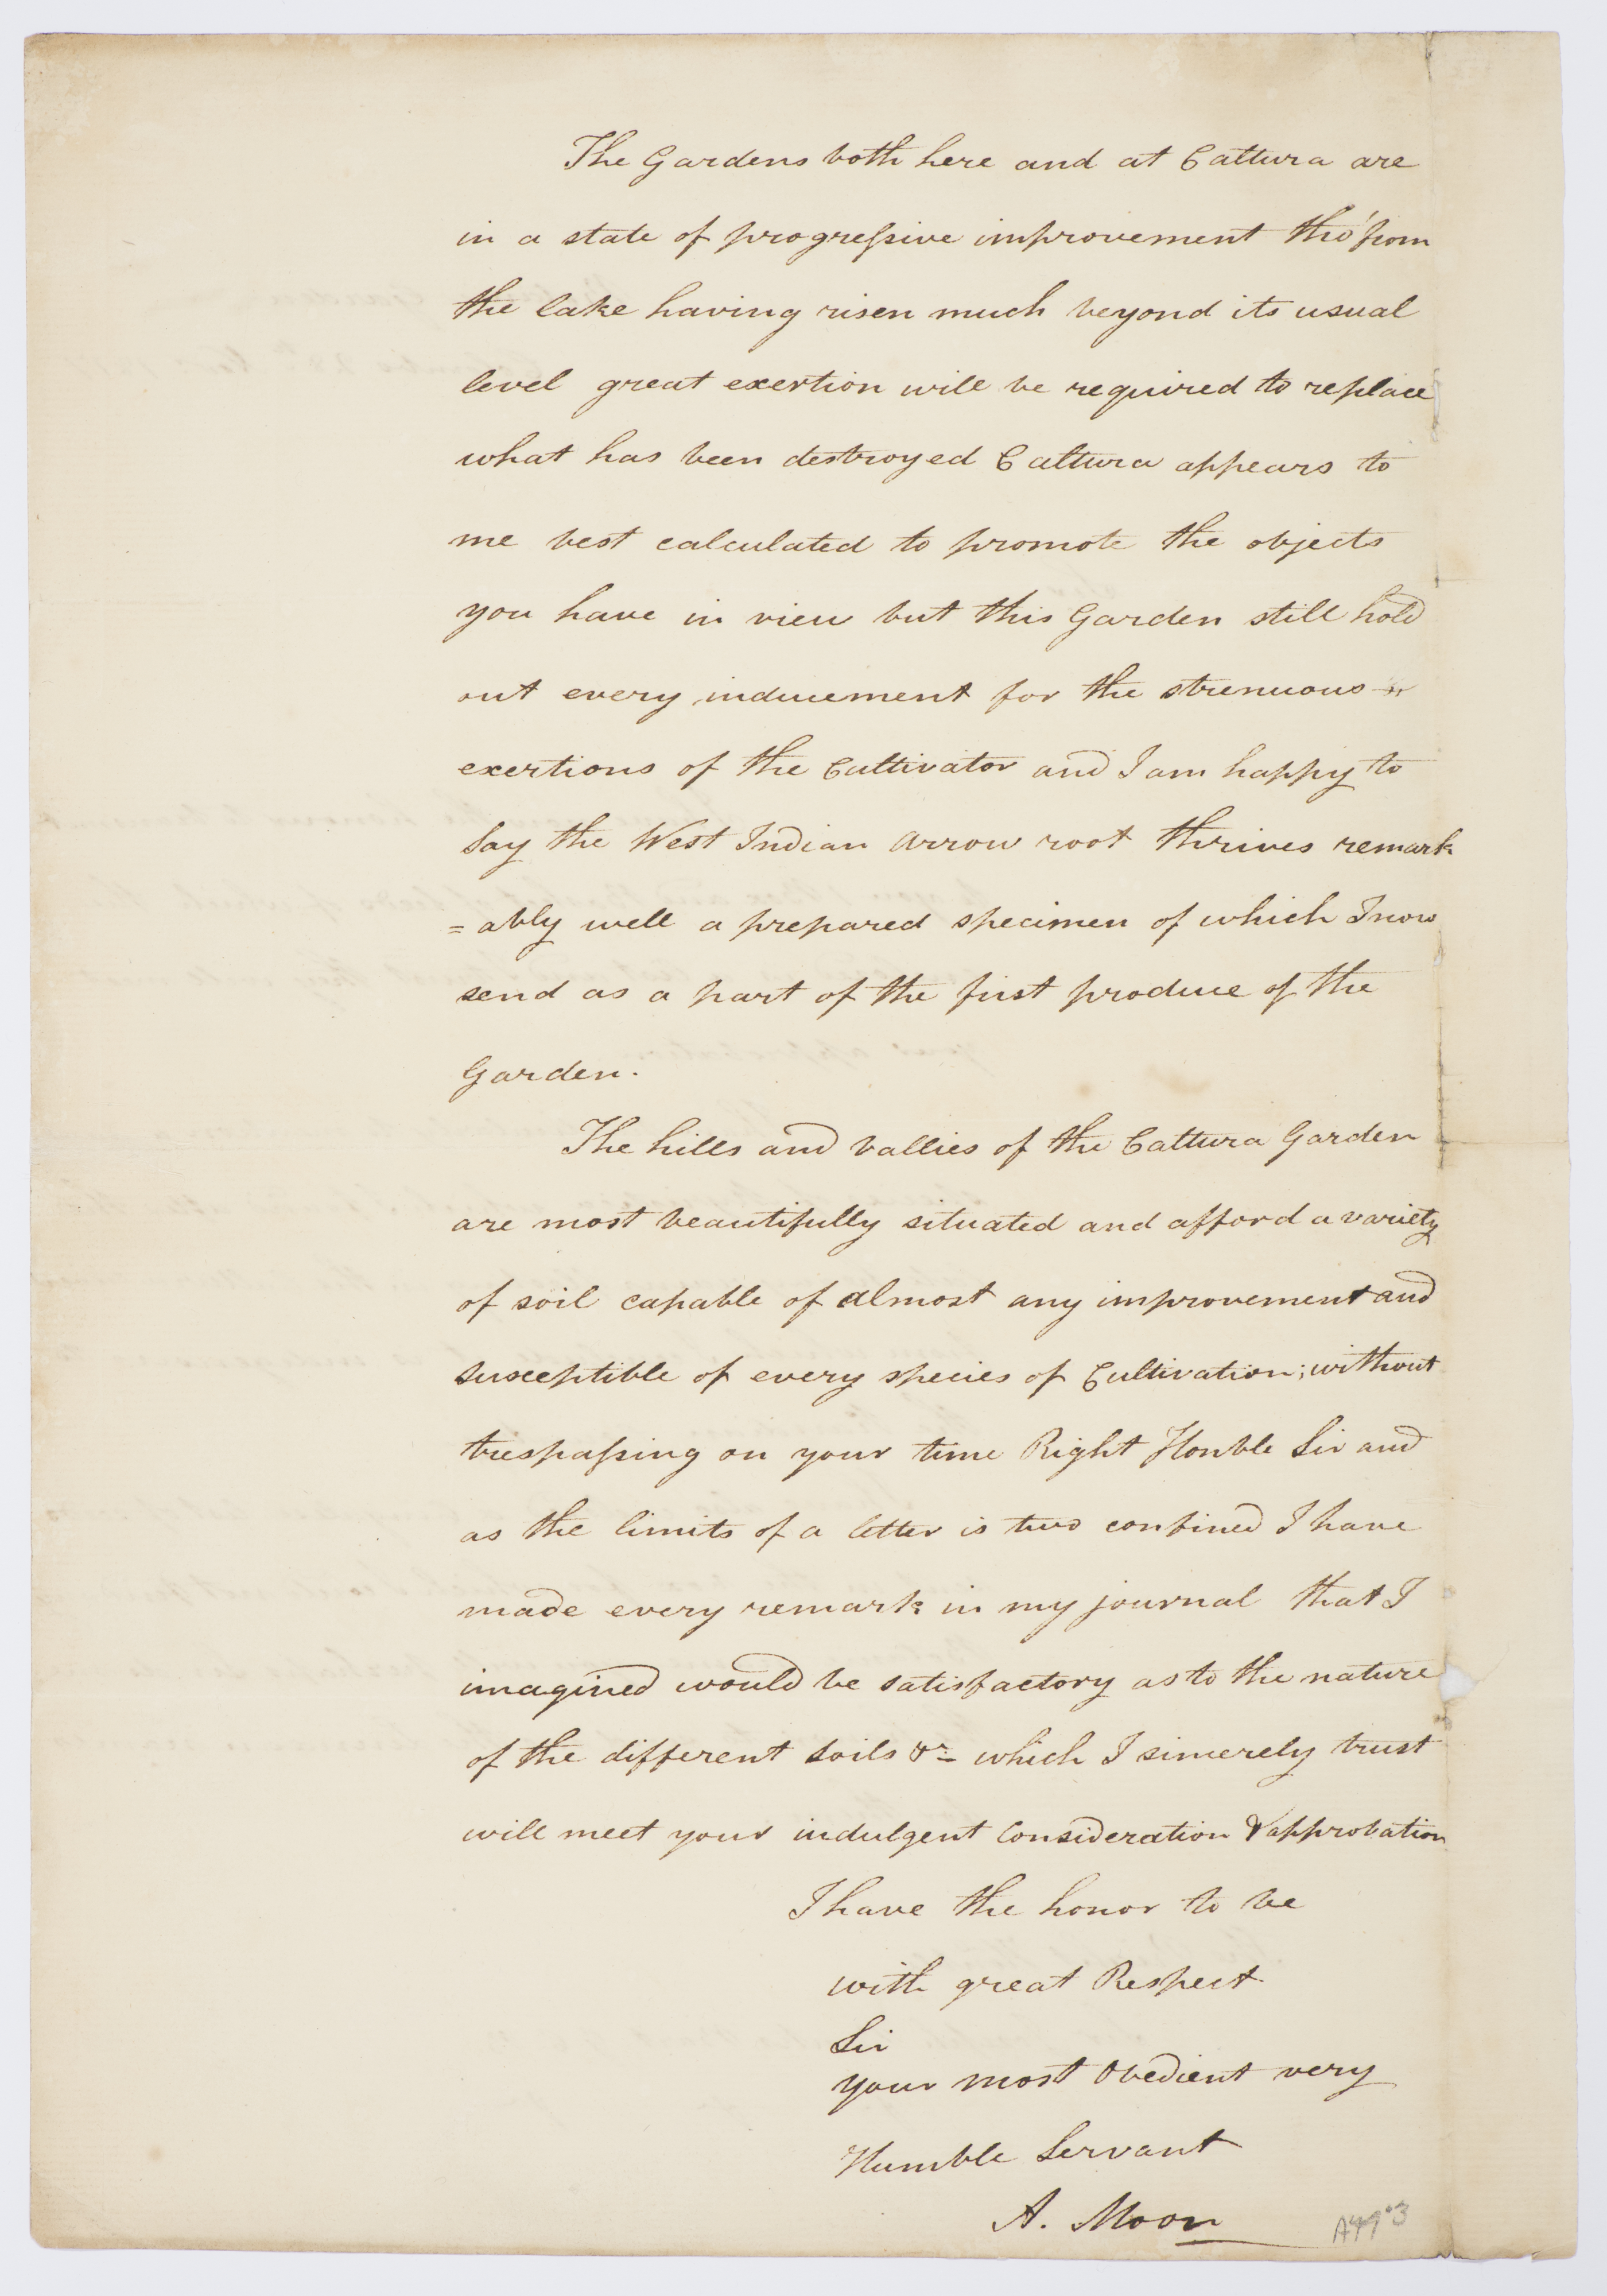 The Gardens both here and at Cattura are
in a state of progressive improvement tho' from
the lake having risen much beyond its usual
level great exertion will be required to replace
what has been destroyed Cattura appears to
me best calculated to promote the objects
you have in view but this Garden still hold
out every inducement for the strenuous
exertions of the Cultivator and I am happy to
say the West Indian Arrow root thrives remark
=ably well a prepared specimen of which I now
send as a part of the first produce of the
Garden.
The hills and Vallies of the Cattura Garden
are most beautifully situated and afford a variety
of soil capable of almost any improvement and
susceptible of every species of Cultivation; without
trespassing on your time Right Honble Sir and
as the limits of a letter is two confined I have
made every remark in my journal that I
imagined would be satisfactory as to the nature
of the different soils &c which I sincerely trust
will meet your indulgent Consideration & approbation
I have the honor to be
with great Respect
Sir
your most Obedient very
Humble Servant
A. Moon